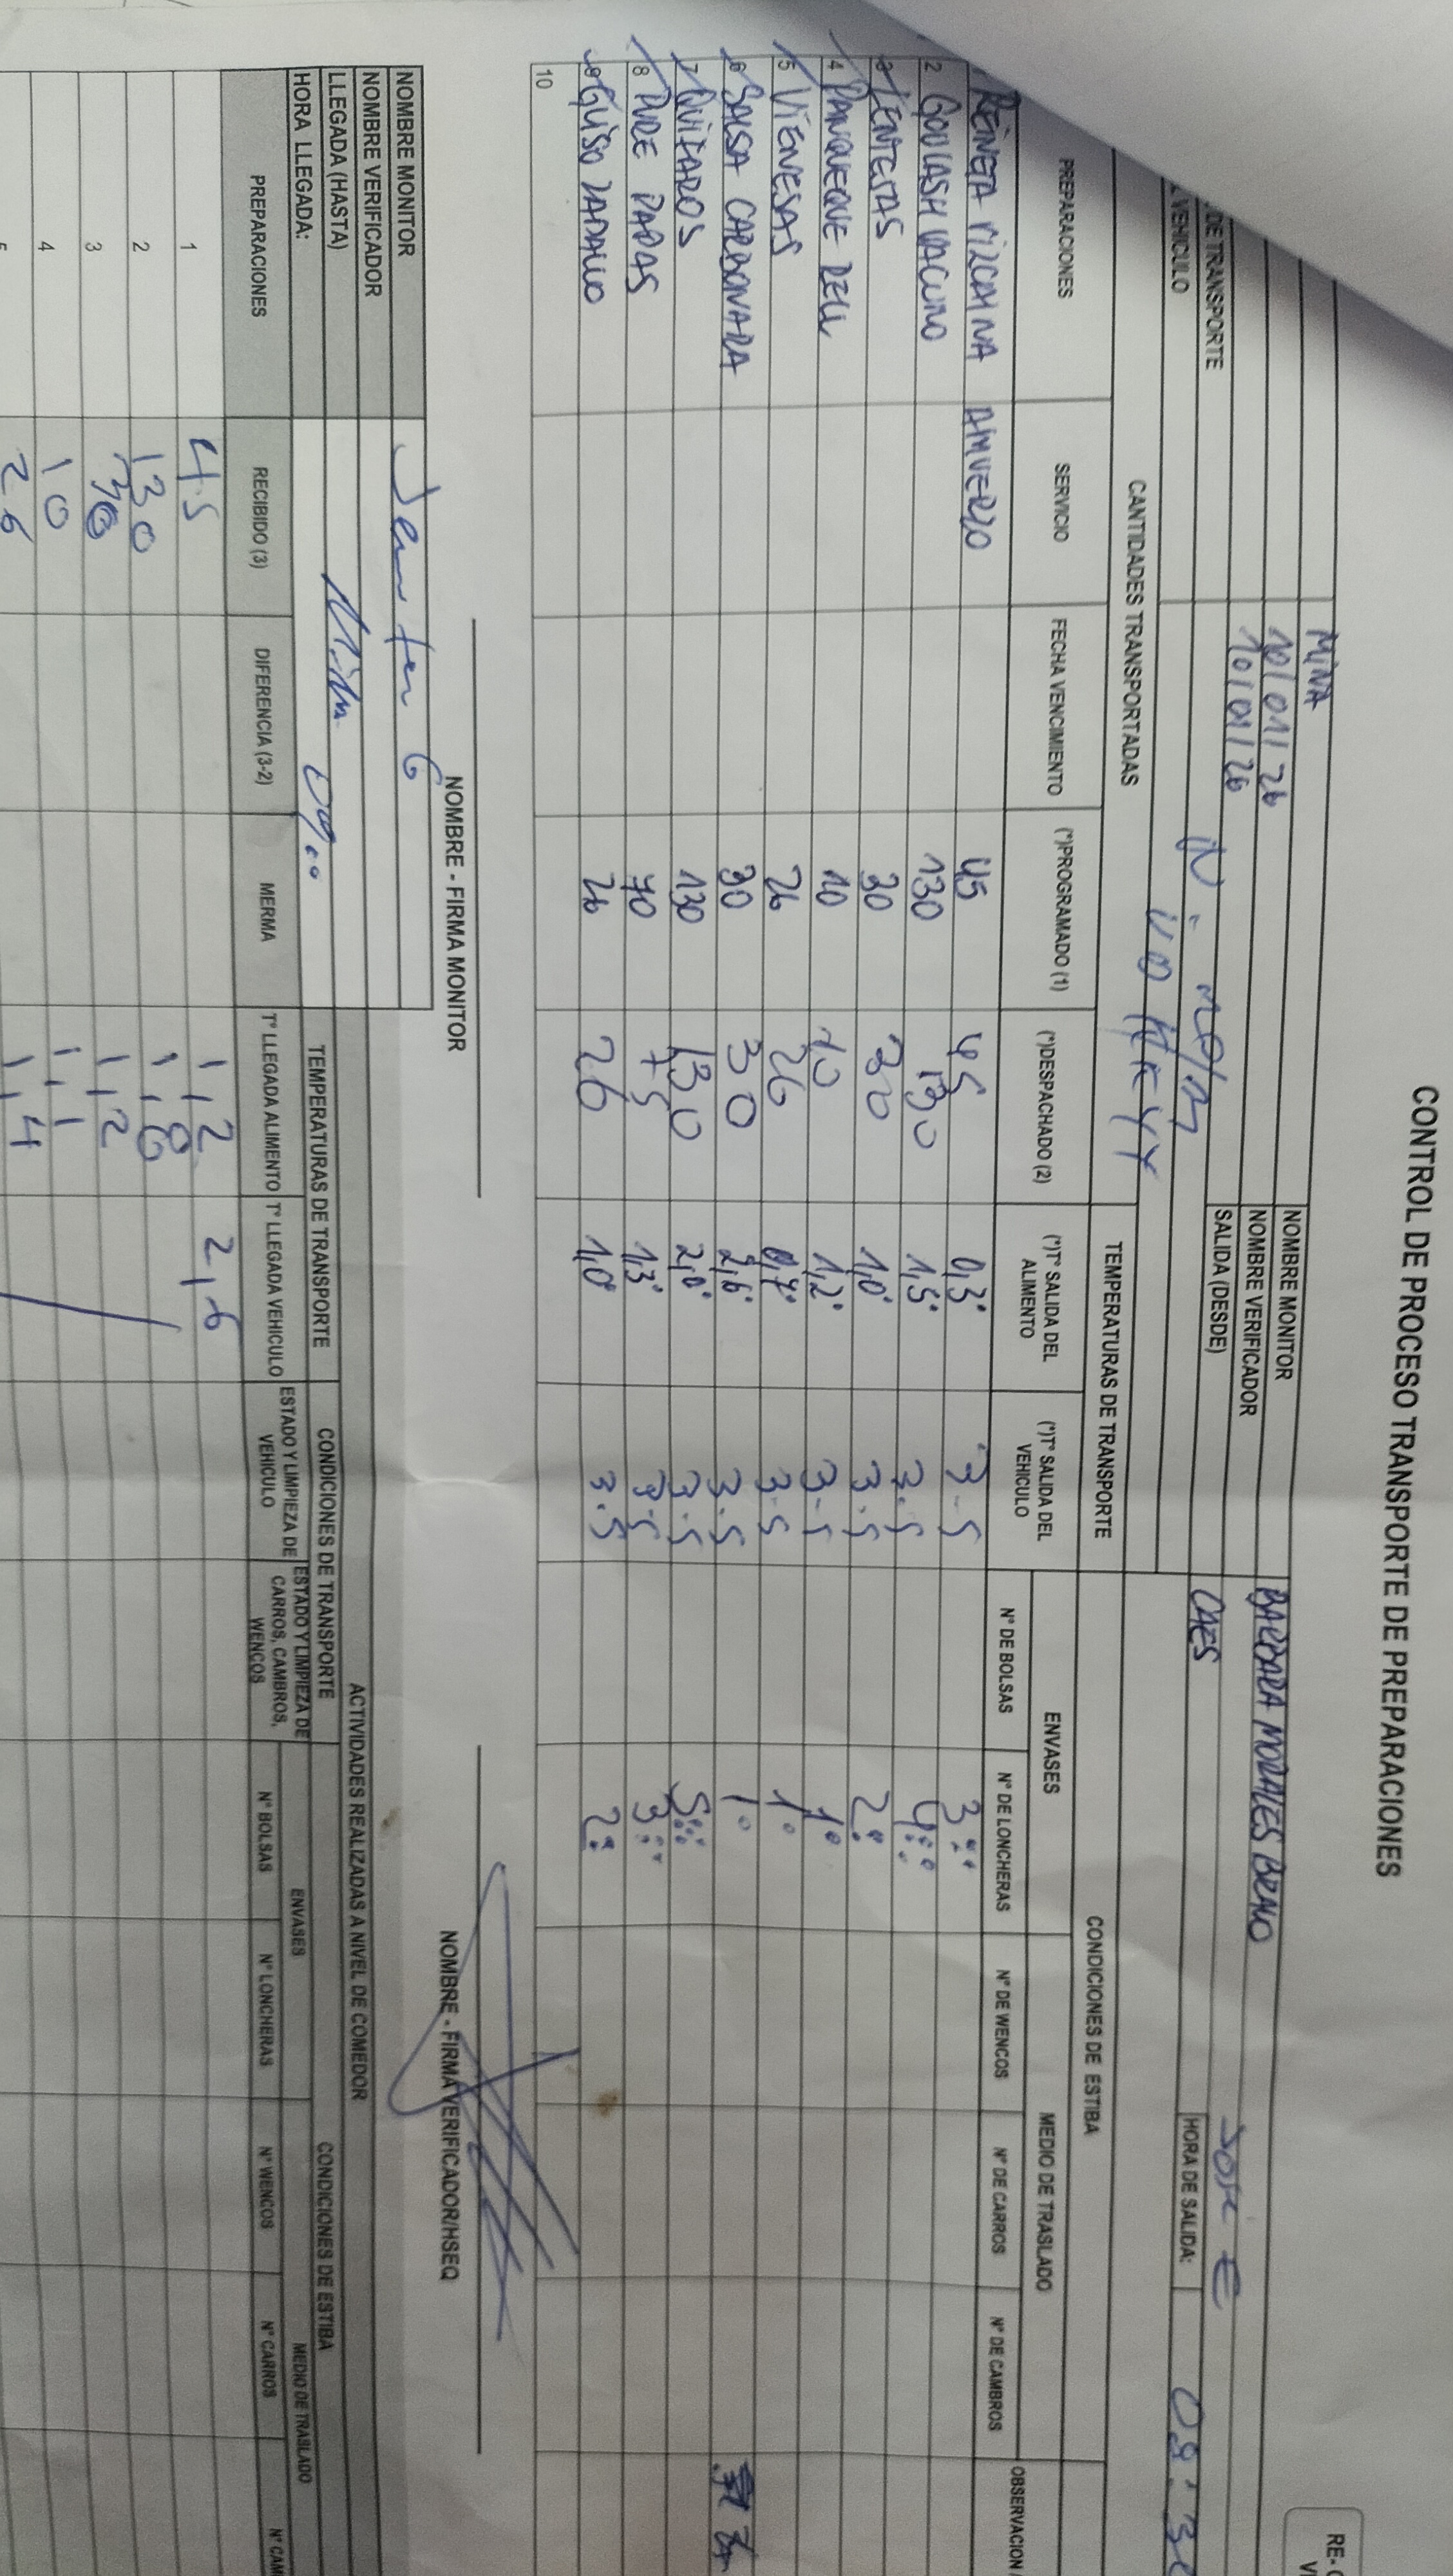 CONTROL DE PROCESO TRANSPORTE DE PREPARACIONES
RE-
MINA
10/01/26
NOMBRE MONITOR
BARBARA MORALES BRAVO
10/01/26
NOMBRE VERIFICADOR
JOSE E
DE TRANSPORTE
SALIDA (DESDE)
CAES
HORA DE SALIDA:
VEHICULO
CANTIDADES TRANSPORTADAS
TEMPERATURAS DE TRANSPORTE
CONDICIONES DE ESTIBA
PREPARACIONES
SERVICIO
FECHA VENCIMIENTO
(*)PROGRAMADO (1)
(*)DESPACHADO (2)
(*)T° SALIDA DEL ALIMENTO
(*)T° SALIDA DEL VEHICULO
ENVASES
MEDIO DE TRASLADO
N° DE BOLSAS
N° DE LONCHERAS
N° DE WENCOS
N° DE CARROS
N° DE CAMBROS
OBSERVACION
REINETA VIZCAINA ALMUERZO 45 45 0,3° 3.5 3
2 GOULASH VACUNO 130 130 1,5° 3.5 4
3 LENTEJAS 30 30 1,0° 3.5 2
4 PANQUEQUE 10 10 1,2° 3.5 1
5 VIENESAS 26 26 0,7° 3.5 1
6 SALSA CARBONARA 30 30 2,6° 3.5 1
7 QUIFAROS 130 130 2,0° 3.5 5
8 PURE PAPAS 70 75 1,3° 3.5 3
9 GUISO ZAPALLO 26 26 1,0° 3.5 2
10
NOMBRE - FIRMA MONITOR
NOMBRE - FIRMA VERIFICADOR/HSEQ
NOMBRE MONITOR
NOMBRE VERIFICADOR
LLEGADA (HASTA)
HORA LLEGADA:
ACTIVIDADES REALIZADAS A NIVEL DE COMEDOR
TEMPERATURAS DE TRANSPORTE
CONDICIONES DE TRANSPORTE
CONDICIONES DE ESTIBA
PREPARACIONES
RECIBIDO (3)
DIFERENCIA (3-2)
MERMA
T° LLEGADA ALIMENTO
T° LLEGADA VEHICULO
ESTADO Y LIMPIEZA DE VEHICULO
ESTADO Y LIMPIEZA DE CARROS, CAMBROS, WENCOS
ENVASES
MEDIO DE TRASLADO
N° BOLSAS
N° LONCHERAS
N° WENCOS
N° CARROS
N° CAM
1 45 1,2 2,6
2 130
3 30 1,2
4 10 1,1
5 26 1,4